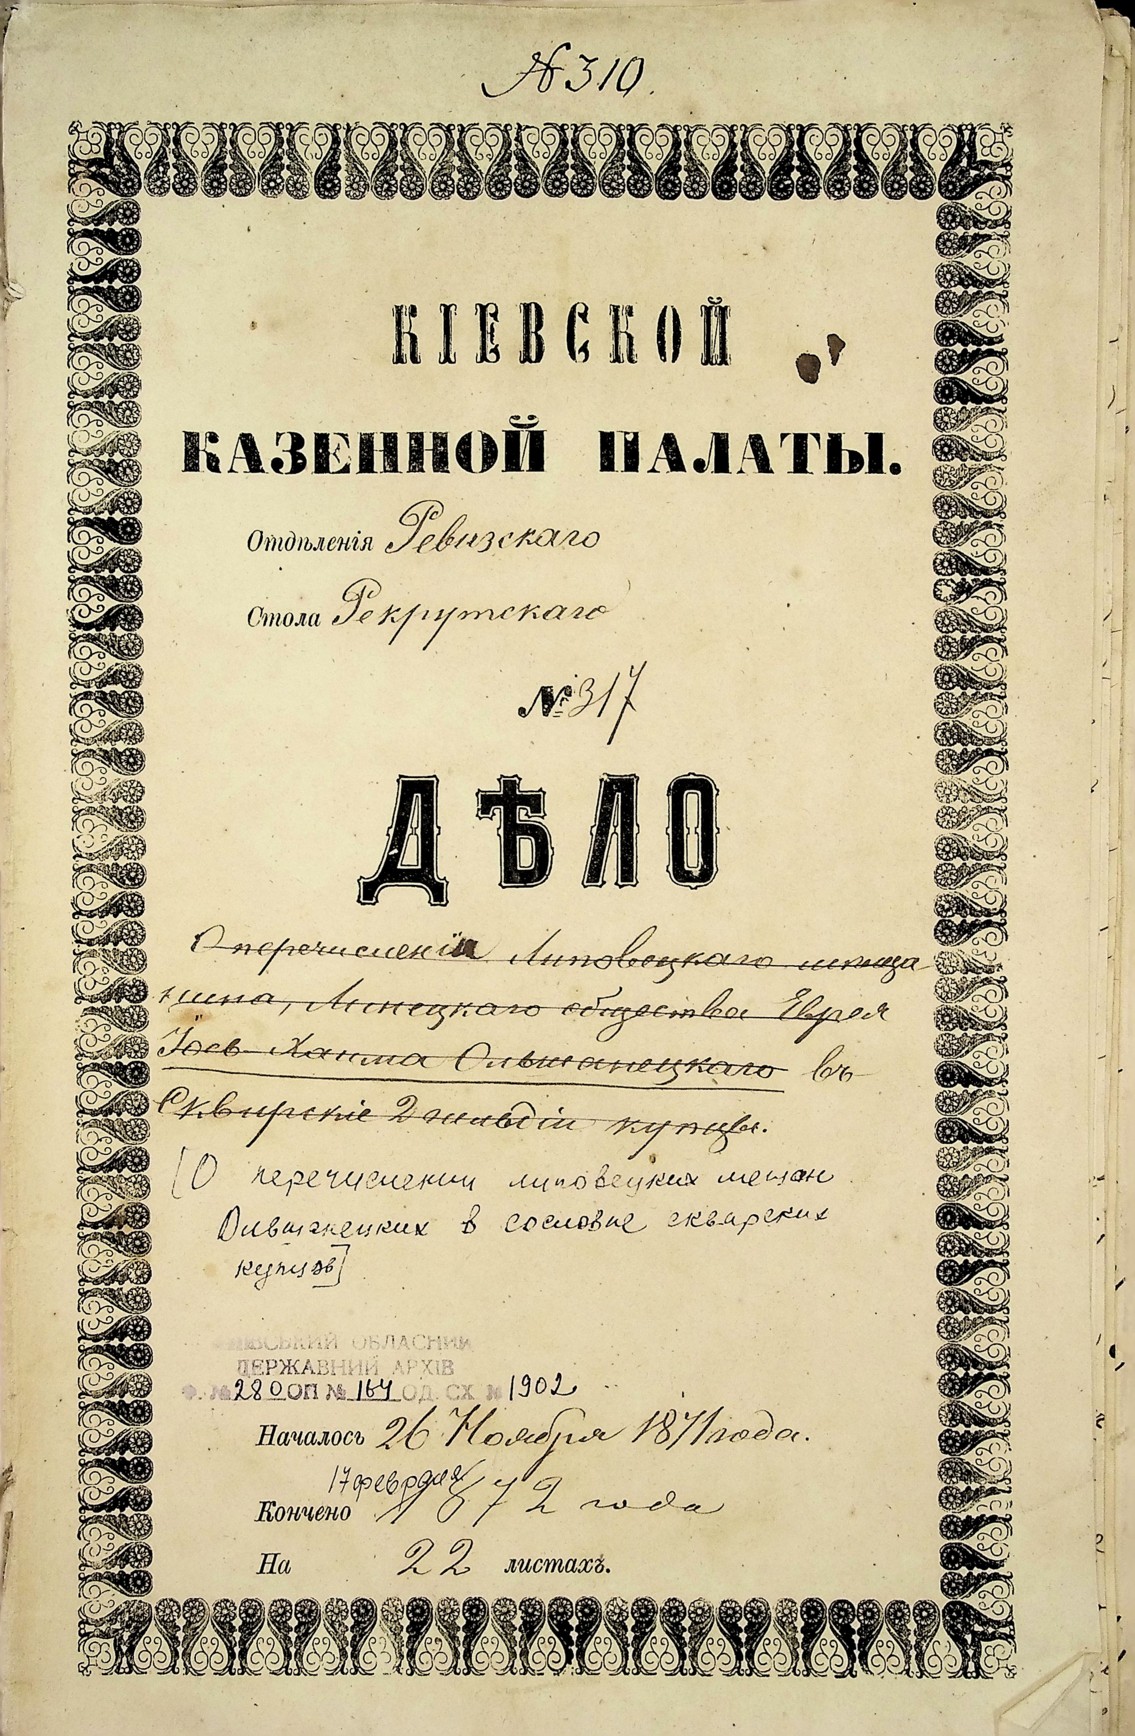 № 310.
КІЕВСКОЙ
КАЗЕННОЙ ПАЛАТЫ.
Отдѣленія Ревизскаго
Стола Рекрутскаго
№ 317
ДѢЛО
О перечисленіи Липовецкаго мѣща-
нина, Линецкаго общества Еврея
Іось-Хаима Ольшанецкаго въ
Сквирскіе 2 гильдіи купцы.
[О перечислении липовецких мещан
Ольшанецких в сословие сквирских
купцов]
КИЇВСЬКИЙ ОБЛАСНИЙ
ДЕРЖАВНИЙ АРХІВ
Ф. № 280 ОП № 164 ОД. СХ. № 1902
Началось 26 Ноября 1871 года.
17 февраля
Кончено 1872 года
На 22 листахъ.